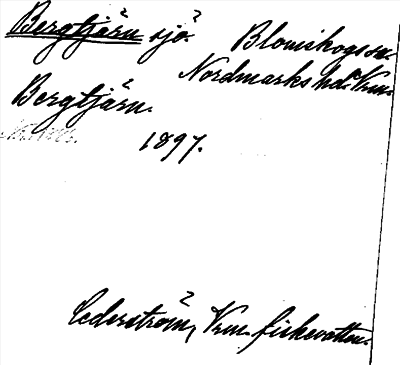 Bergtjärn sjö. Blomskogs sn.
Nordmarks hd. Vrm.
Bergtjärn.
1897.
Cederström, Vrm. fiskevatten.